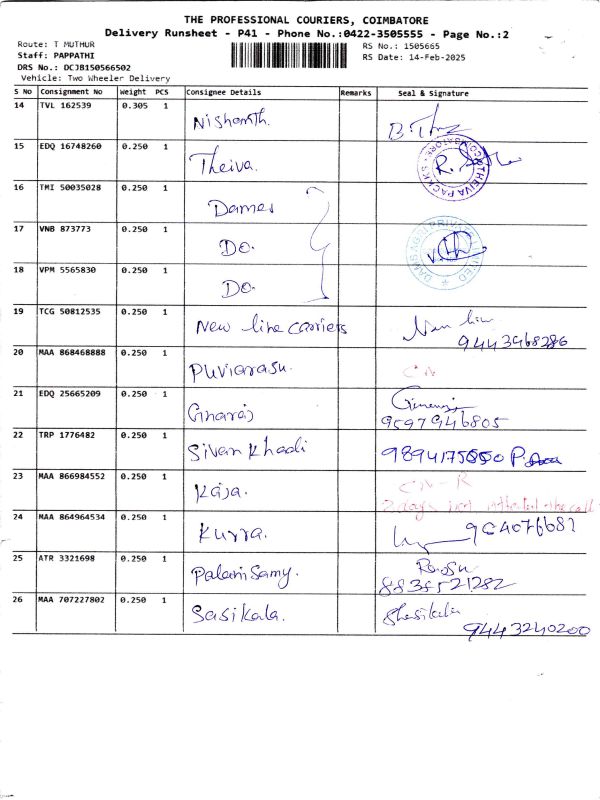 THE PROFESSIONAL COURIERS, COIMBATORE
Delivery Runsheet - P41 - Phone No.:0422-3505555 - Page No.:2
Route: T MUTHUR
RS No.: 1505665
Staff: PAPPATHI
RS Date: 14-Feb-2025
DRS No.: DCJB150566502
Vehicle: Two Wheeler Delivery
S No Consignment No Weight PCS Consignee Details Remarks Seal & Signature
14 TVL 162539 0.305 1 Nishanth.
15 EDQ 16748260 0.250 1 Theiva.
16 TMI 50035028 0.250 1 Dames
17 VNB 873773 0.250 1 Do.
18 VPM 5565830 0.250 1 Do.
19 TCG 50812535 0.250 1 New line carriers
9443968286
20 MAA 868468888 0.250 1 Puviarasu.
21 EDQ 25665209 0.250 1 Gnaraj
9597946805
22 TRP 1776482 0.250 1 Sivan Khadi
23 MAA 866984552 0.250 1 Kaja.
24 MAA 864964534 0.250 1 Kurra.
25 ATR 3321698 0.250 1 Palanisamy.
8838521282
26 MAA 707227802 0.250 1 Sasikala. Shasikala
9443240200